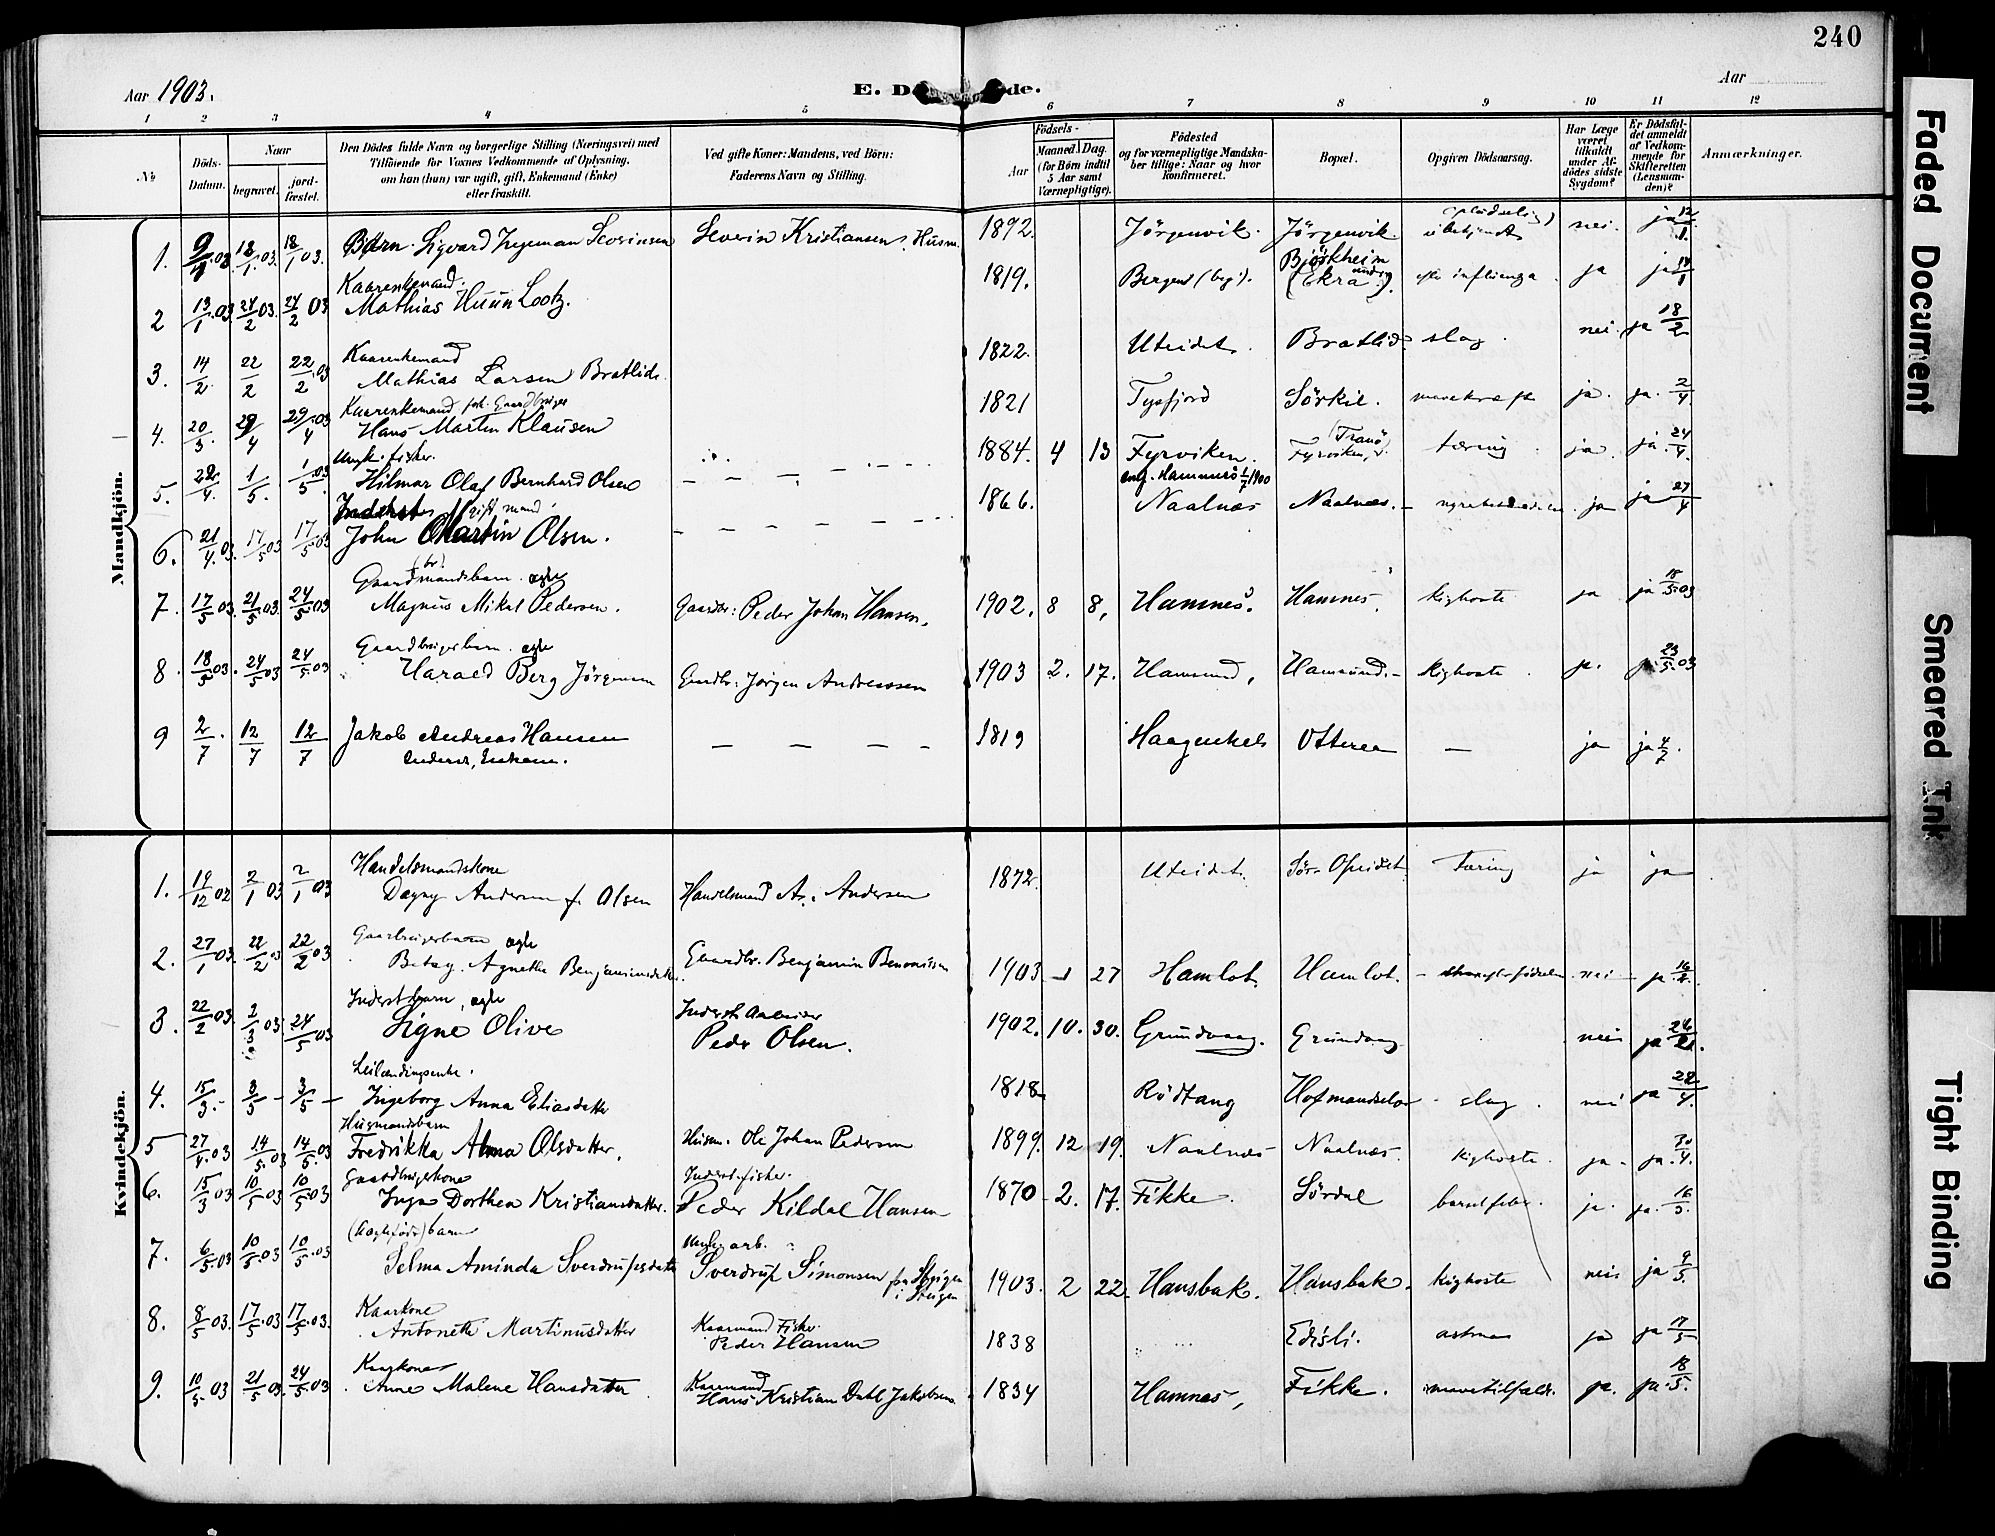 240
Aar 1903.
E. D de.
Aar
1 2 3 4 5 6 7 8 9 10 11 12
No
Döds-Datum.
Naar
begravet.
jord-fæstet.
Den Dödes fulde Navn og borgerlige Stilling (Næringsvei) med
Tilföiende for Voxnes Vedkommende af Oplysning,
om han (hun) var ugift, gift, Enkemand (Enke)
eller fraskilt.
Ved gifte Koner: Mandens, ved Börn:
Faderens Navn og Stilling.
Födsels-
Aar
Maaned. Dag.
(for Börn indtil
5 Aar samt
Værnepligtige).
Födested
og for værnepligtige Mandska-
ber tillige: Naar og hvor
konfirmeret.
Bopæl.
Opgiven Dödsaarsag.
Har Læge
været
tilkaldt
under Af-
dödes sidste
Sygdom?
Er Dödsfal-
det anmeldt
af Vedkom-
mende for
Skifteretten
(Lensman-
den)?
Anmærkninger.
Mandkjön.
1. 9/1 03. 18/1 03. 18/1 03. Barn Sigvard Ingeman Severinsen Severin Kristiansen, Husm. 1892. Jörgenvik. Jörgenvik. ubekjendt nei. ja 12/1.
Kaarenkemand.
2 13/1 03 24/2 03. 24/2 03 Mathias Huun Lootz. 1819. Bergen (by). Björkheim (Ekra). influenza ja ja 14/1
Kaarenkemand
3. 14/2. 22/2 22/2 03 Mathias Larsen Bratlid. 1822. Uteidet. Bratlid. slag. nei. ja 18/2
Kaarenkemand
4. 20/3. 29/4 29/4 03 Hans Martin Klausen 1821 Tysfjord Sörkil. mavekræft ja. ja. 2/4
Ungk. fisker.
5. 22/4. 1/5. 1/5 03 Hilmar Olaf Bernhard Olsen 1884. 4 13 Fyrviken. Fyrviken, (Tranö) tæring ja. ja. 24/4.
conf. Hammerö 1/7 1900
Inderst, gift mand
6. 21/4 03. 17/5 03 17/5 03 John Martin Olsen. 1866. Naalnæs Naalnæs. ja ja 27/4
Gaardmandsbarn. ægte
7. 17/5 03. 21/5 03. 24/5 03 Magnus Mikal Pedersen. Gaardbr: Peder Johan Hansen. 1902. 8 8, Hamnes. Hamnes. kighoste ja ja 18/5 03
Gaardbrugerbarn. ægte
8. 18/5 03. 24/5 03 24/5 03 Harald Berg Jörgensen Gardbr: Jörgen Andreassen 1903 2. 17. Hamsund, Hamsund. kighoste. ja. ja. 23/5 03
9 2/7. 12/7 12/7 Jakob Andreas Hansen 1819 ja ja 4/7.
Kvindekjön.
Handelsmandskone
1. 19/12 02 2/1 03 2/1 03 Dagny Andersen f. Olsen Handelsmand A. Andersen 1872. Uteidet. Sör-Opeidet Tæring ja ja
Gaarbrugerbarn ægte
2. 27/1 03. 22/2 03 22/2 03 Betzy Agnethe Benjaminsdatter. Gaardbr. Benjamin 1903 1 27 Hamlot. Hamlot. nei ja
Inderstbarn, ægte
3. 22/2 03. 2/3 03 24/5 03 Signe Olive Inderst Arbeider
Peder Olsen. 1902. 10. 30. Grundvaag. Grundvaag nei ja
Leilændingsenke.
4. 15/3. 3/5 3/5 Ingeborg Anna Eliasdatter 1818 Rödtang slag. nei ja 28/4.
Husmandsbarn
5 27/4 03 14/5. 03 14/5. 03 Fredrikka Alma Olsdatter. Husm. Ole Johan Pedersen 1899. 12 19. Naalnæs Naalnæs. kighoste. ja ja. 30/4.
Gaardbrugerkone Inderst. fisker.
6. 15/3 03 10/5 03 10/5 03 Inga Dorthea Kristiansdatter. Peder Kildal Hansen 1870 2. 17. Fikke. Sördal barselfeber. ja. ja. 16/5.
(Uægtefødt) barn Ungk. arb.
7. 6/5 03 10/5 03 10/5. 03 Selma Aminda Sverdrupsdatter Sverdrup Simonsen fra
i Steigen 1903. 2 22. Hansbak. Hansbak. kighoste nei ja 9/5.
Kaarkone Kaarmand Fisker.
8. 8/5 03. 17/5. 03 17/5. 03. Antonette Martinusdatter Peder Hansen 1838 Edisli. astma ja ja 17/5
Kaarkone Kaarmand
9. 10/5. 03 21/5 03. 24/5. 03 Anne Malene Hansdatter Hans Kristian Dahl Jakobsen 1834 Hamnæs, Fikke. mavetilfælde. ja. ja. 18/5.
Faded Document
Smeared Ink
Tight Binding